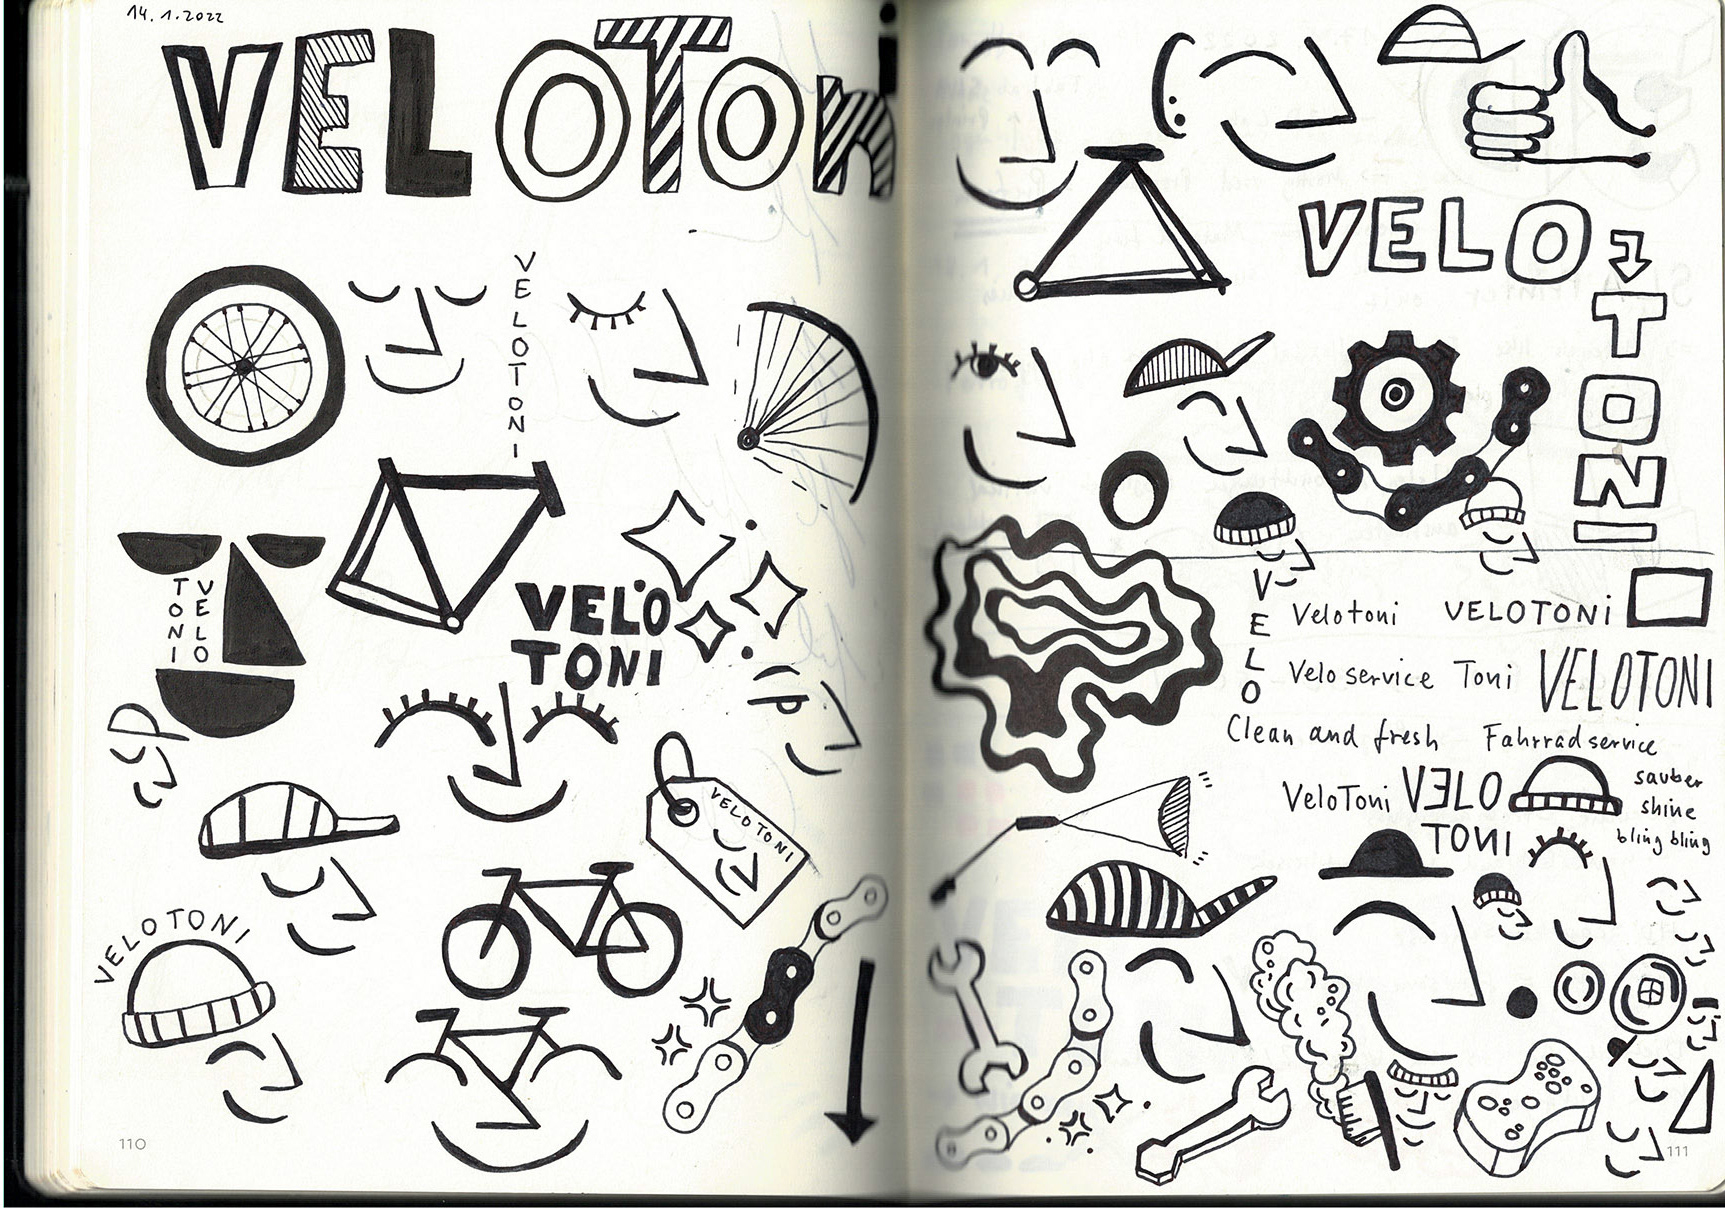 14.1.2022
VELOTOni
VELOTONI
TONI
VELO
VELO
TONI
VELOTONI
VELOTONI
110
VELO
TONI
VELO
Velotoni
VELOTONi
Veloservice Toni
VELOTONI
Clean and fresh
Fahrradservice
VeloToni
VELO
TONI
sauber
shine
bling bling
111